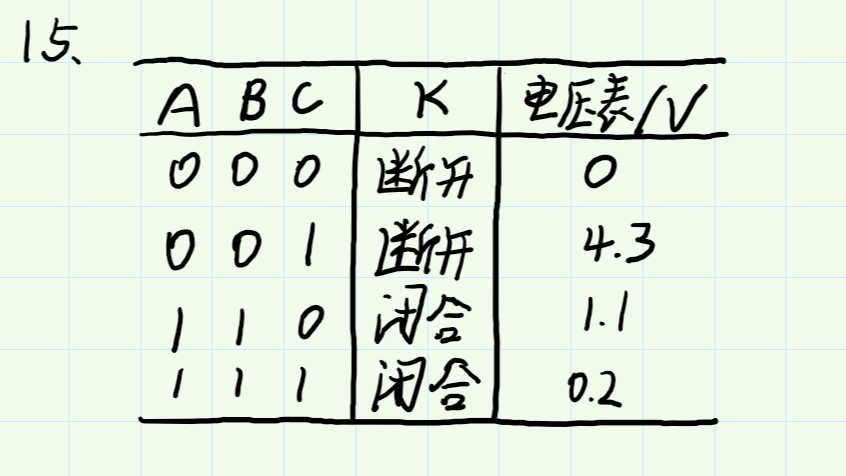 15、
A B C K 电压表/V
0 0 0 断开 0
0 0 1 断开 4.3
1 1 0 闭合 1.1
1 1 1 闭合 0.2